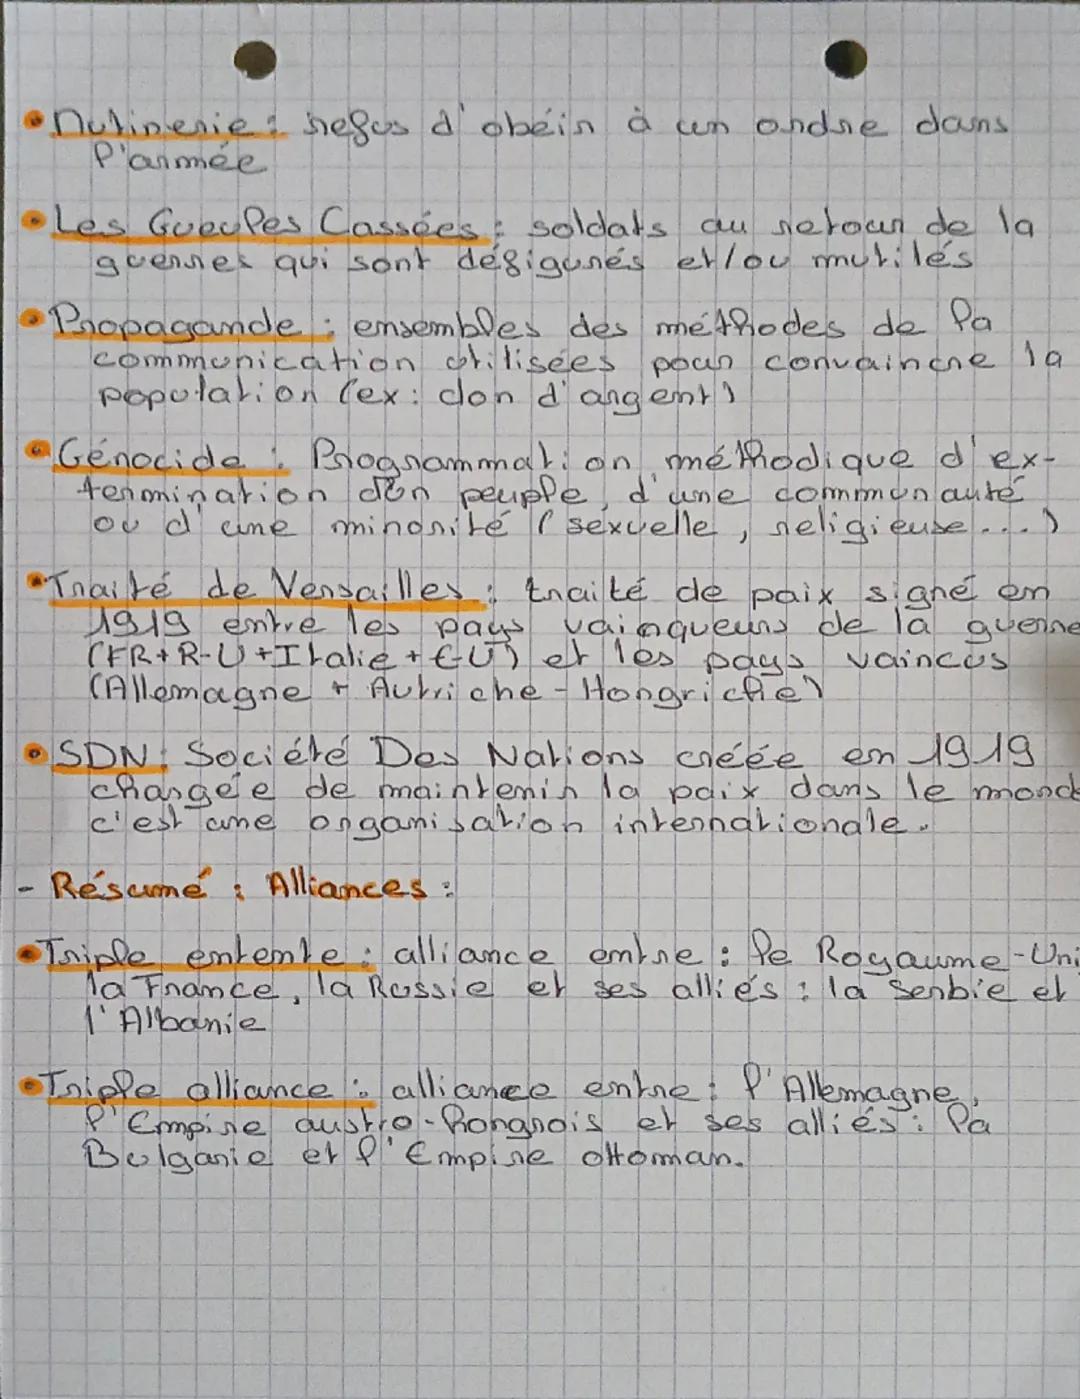 • Mutinerie : refus d'obéir à un ordre dans
l'armée
• Les Gueules Cassées : soldats au retour de la
guerres qui sont défigurés et/ou mutilés
• Propagande : ensembles des méthodes de la
communication utilisées pour convaincre la
population (ex : don d'argent)
• Génocide : Programmation méthodique d'ex-
termination d'un peuple, d'une communauté
ou d'une minorité (sexuelle, religieuse...)
• Traité de Versailles : traité de paix signé en
1919 entre les pays vainqueurs de la guerre
(FR+R-U+Italie+EU) et les pays vaincus
(Allemagne + Autriche-Hongrichie)
• SDN : Société Des Nations créée en 1919
chargée de maintenir la paix dans le mond
c'est une organisation internationale.
- Résumé : Alliances :
• Triple entente : alliance entre : le Royaume-Uni
la France, la Russie et ses alliés : la Serbie et
l'Albanie
• Triple alliance : alliance entre : l'Allemagne,
l'Empire austro-hongrois et ses alliés : la
Bulgarie et l'Empire ottoman.